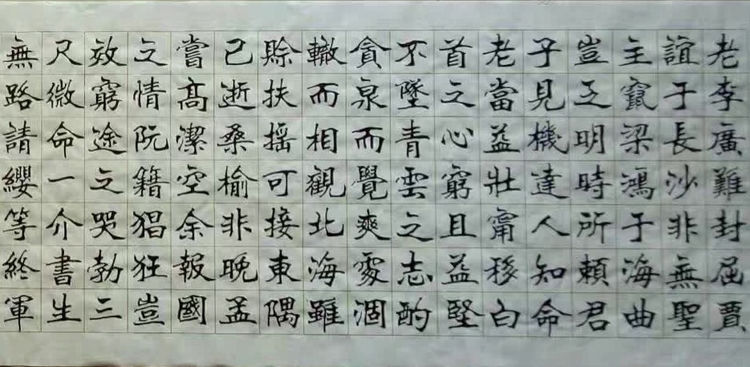 老李廣難封屈賈
誼于長沙非無聖
主竄梁鴻于海曲
豈乏明時所賴君
子見機達人知命
老當益壯甯移白
首之心窮且益堅
不墜青雲之志酌
貪泉而覺爽處涸
轍而相觀北海雖
賒扶搖可接東隅
已逝桑榆非晚孟
嘗髙潔空余報國
之情阮籍猖狂豈
效窮途之哭勃三
尺微命一介書生
無路請纓等終軍